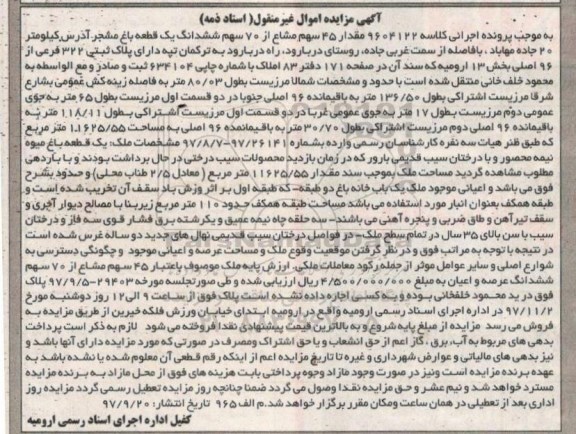 آگهی مزایده اموال غیرمنقول( اسناد ذمه)
به موجب پرونده اجرائی کلاسه ۹۶۰۴۱۲۲ مقدار ۴۵ سهم مشاع از ۷۰ سهم ششدانگ یک قطعه باغ مشجر آدرس کیلومتر
۲۰ جاده مهاباد ، بافاصله از سمت غربی جاده، روستای دربارود، راه دربارود به ترکمان تپه دارای پلاک ثبتی ۳۲۲ فرعی از
۹۶ اصلی بخش ۱۳ ارومیه که سند آن در صفحه ۱۷۱ دفتر ۸۳ املاک با شماره چاپی ۶۳۴۱۰۴ ثبت و صادر و مع الواسطه به
محمود خلف خانی منتقل شده است با حدود و مشخصات شمالا مرزیست بطول ۸۰/۰۳ متر به فاصله زینه کش عمومی بشارع
شرقا مرزیست اشتراکی بطول ۱۳۶/۵۰ متر به باقیمانده ۹۶ اصلی جنوبا در دو قسمت اول مرزیست بطول ۶۵ متر به جوی
عمومی دوم مرزیست بطول ۱۷ متر به جوی عمومی غربا در دو قسمت اول مرزیست اشتراکی بطول ۱۱۸/۱۱ متر به
باقیمانده ۹۶ اصلی دوم مرزیست اشتراکی بطول ۳۰/۷۰ متر به باقیمانده ۹۶ اصلی به مساحت ۱۱۶۲۵/۵۵ متر مربع
که طبق نظر هیات سه نفره کارشناسان رسمی وارده بشماره ۹۷۰۲۶۱۴۱-۹۷/۸/۷ مشخصات ملک: یک قطعه باغ میوه
نیمه محصور و با درختان سیب قدیمی بارور که در زمان بازدید محصولات سیب درختی در حال برداشت بودند و با باردهی
مطلوب مشاهده گردید مساحت ملک بموجب سند مقدار ۱۱۶۲۵/۵۵ متر مربع ( معادل ۲/۵ طناب محلی) و حدود بشرح
فوق می باشد و اعیانی موجود ملک یک باب خانه باغ دو طبقه- که طبقه اول بر اثر وزش باد سقف آن تخریب شده است و
طبقه همکف بعنوان انبار مورد استفاده می باشد مساحت طبقه همکف حدود ۱۱۰ متر مربع زیربنا با مصالح دیوار آجری و
سقف تیرآهن و طاق ضربی و پنجره آهنی می باشند- سه حلقه چاه نیمه عمیق و یکرشته برق فشار قوی سه فاز و درختان
سیب با سن بالای ۳۵ سال در تمام سطح ملک- در فواصل درختان سیب قدیمی نهال های جدید دو ساله غرس شده است
در نتیجه با توجه به مراتب فوق و در نظر گرفتن موقعیت وقوع ملک و مساحت عرصه و اعیانی موجود و چگونگی دسترسی به
شوارع اصلی و سایر عوامل موثر از جمله رکود معاملات ملکی. ارزش پایه ملک موصوف باعتبار ۴۵ سهم مشاع از ۷۰ سهم
ششدانگ عرصه و اعیان به مبلغ ۴/۵۰۰/۰۰۰/۰۰۰ ریال ارزیابی شده و طی صورتجلسه مورخه ۲۹۴۰۳-۹۷/۹/۵ پلاک
فوق در ید محمود خلفخانی بوده و به کسی اجاره داده نشده است پلاک فوق از ساعت ۹ الی ۱۲ روز دوشنبه مورخ
۹۷/۱۱/۲ در اداره اجرای اسناد رسمی ارومیه واقع در ارومیه ابتدای خیابان ورزش فلکه خیرین از طریق مزایده به
فروش می رسد مزایده از مبلغ پایه شروع و به بالاترین قیمت پیشنهادی نقدا فروخته می شود لازم به ذکر است پرداخت
بدهی های مربوط به آب، برق ، گاز اعم از حق انشعاب و یا حق اشتراک و مصرف در صورتی که مورد مزایده دارای آنها باشد و
نیز بدهی های مالیاتی و عوارض شهرداری و غیره تا تاریخ مزایده اعم از اینکه رقم قطعی آن معلوم شده یا نشده باشد به
عهده برنده مزایده است و نیز در صورت وجود مازاد وجوه پرداختی بابت هزینه های فوق از محل مازاد به برنده مزایده
مسترد خواهد شد و نیم عشر و حق مزایده نقدا وصول می گردد ضمنا چنانچه روز مزایده تعطیل رسمی گردد مزایده روز
اداری بعد از تعطیلی در همان ساعت و مکان مقرر برگزار خواهد شد. م الف ۹۶۵ تاریخ انتشار: ۹۷/۹/۲۰
کفیل اداره اجرای اسناد رسمی ارومیه